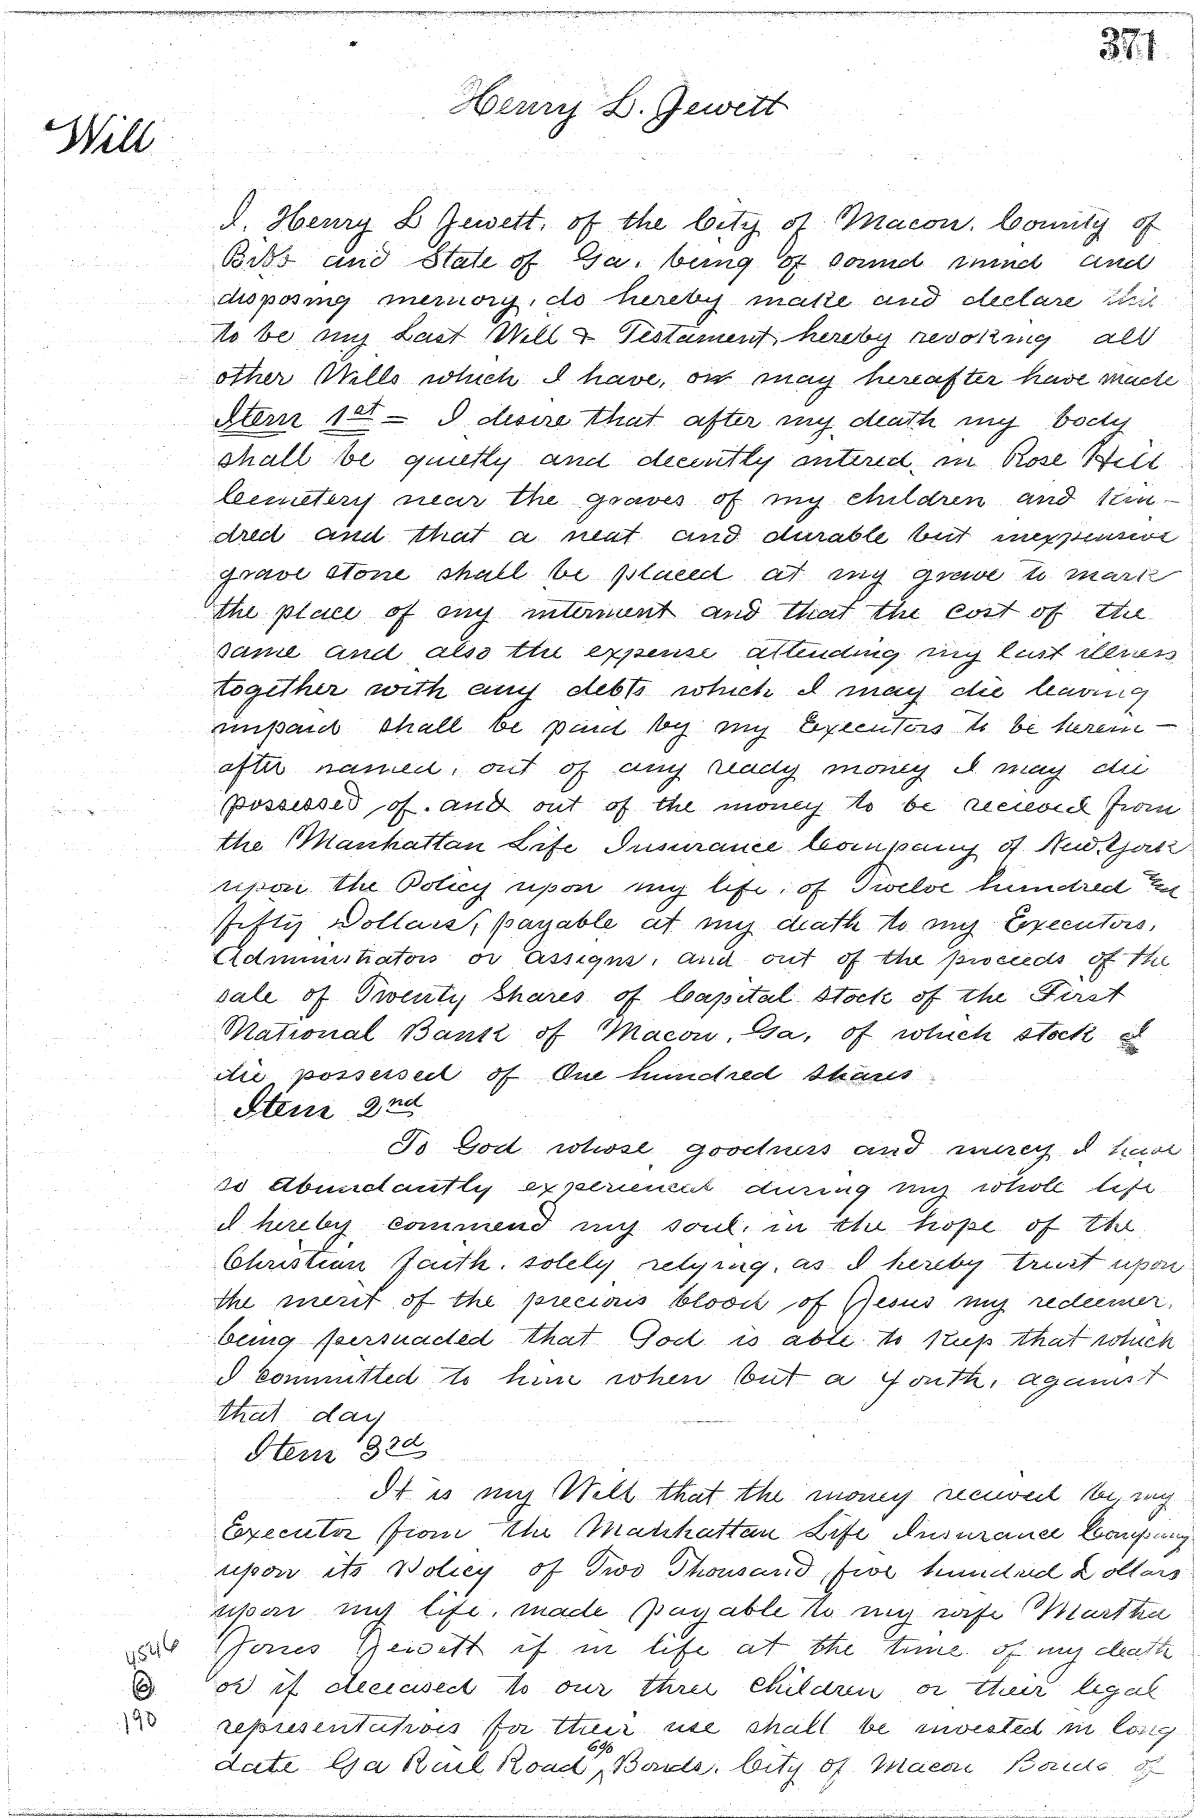 371
Henry L. Jewett
Will
I, Henry L Jewett, of the City of Macon, County of
Bibb and State of Ga. being of sound mind and
disposing memory, do hereby make and declare this
to be my Last Will & Testament, hereby revoking all
other Wills which I have, or may hereafter have made
Item 1st = I desire that after my death my body
shall be quietly and decently intered, in Rose Hill
Cemetery near the graves of my children and kin-
dred and that a neat and durable but inexpensive
grave stone shall be placed at my grave to mark
the place of my interment and that the cost of the
same and also the expense attending my last illness
together with any debts which I may die leaving
unpaid shall be paid by my Executors to be herein-
after named, out of any ready money I may die
possessed of. and out of the money to be recieved from
the Manhattan Life Insurance Company of New York
upon the Policy upon my life, of Twelve hundred and
fifty Dollars, payable at my death to my Executors,
Administrators or assigns, and out of the proceeds of the
sale of Twenty Shares of Capital Stock of the First
National Bank of Macon, Ga, of which stock I
die possessed of One hundred shares
Item 2nd
To God whose goodness and mercy I have
so abundantly experienced during my whole life
I hereby commend my soul, in the hope of the
Christian faith. solely relying, as I hereby trust upon
the merit of the precious blood of Jesus my redeemer,
being persuaded that God is able to keep that which
I committed to him when but a youth, against
that day
Item 3rd
It is my Will that the money recieved by my
Executor from the Manhattan Life Insurance Company
upon its Policy of Two Thousand, five hundred Dollars
upon my life, made payable to my wife Martha
Jones Jewett if in life at the time of my death
or if deceased to our three children or their legal
representatives for their use shall be invested in long
date Ga Rail Road 6% Bonds, City of Macon Bonds of
4546
6
190